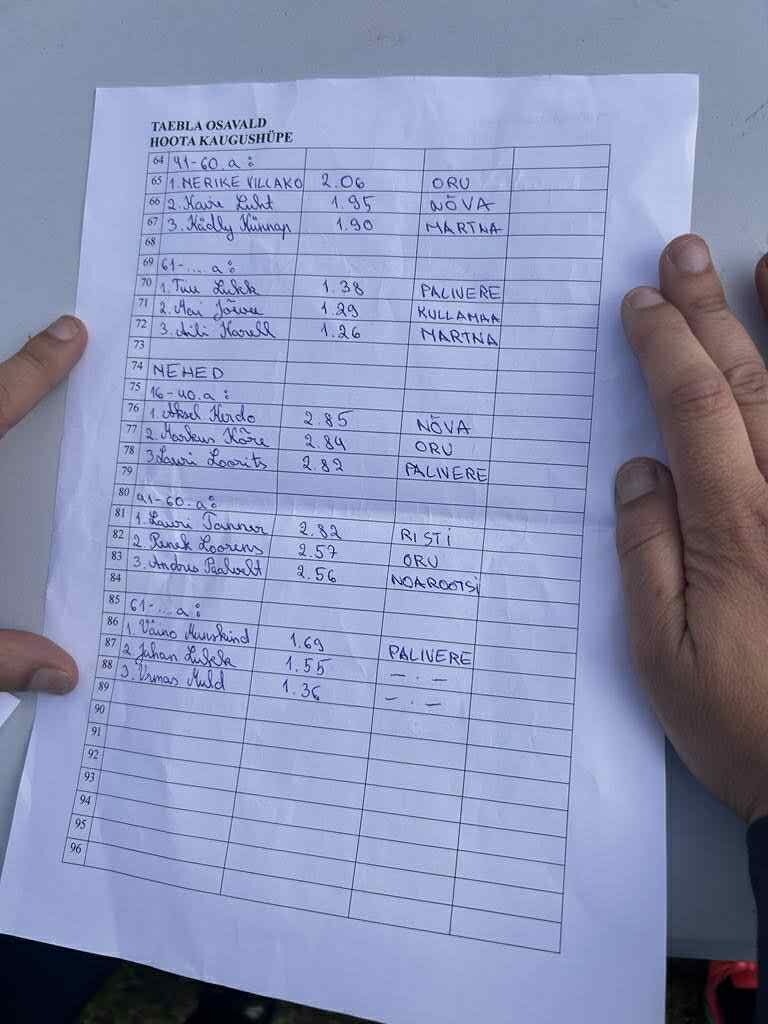 TAEBLA OSAVALD
HOOTA KAUGUSHÜPE
64 41-60.a:
65 1. MERIKE VILLAKO 2.06 ORU
66 2. Kaire Luht 1.95 NÕVA
67 3. Kädly Künnap 1.90 MARTNA
68
69 61-....a:
70 1. Tiiu Lukk 1.38 PALIVERE
71 2. Mai Jõevee 1.29 KULLAMAA
72 3. Aili Karell 1.26 MARTNA
73
74 MEHED
75 16-40.a:
76 1. Aksel Kerdo 2.85 NÕVA
77 2. Markus Kõre 2.84 ORU
78 3. Lauri Loorits 2.82 PALIVERE
79
80 41-60.a:
81 1. Lauri Tanner 2.82 RISTI
82 2. Renek Loorens 2.57 ORU
83 3. Andres Paalvelt 2.56 NOAROOTSI
84
85 61-....a:
86 1. Väino Munskind 1.69 PALIVERE
87 2. Juhan Lukk 1.55 -.-
88 3. Urmas Muld 1.36 -.-
89
90
91
92
93
94
95
96